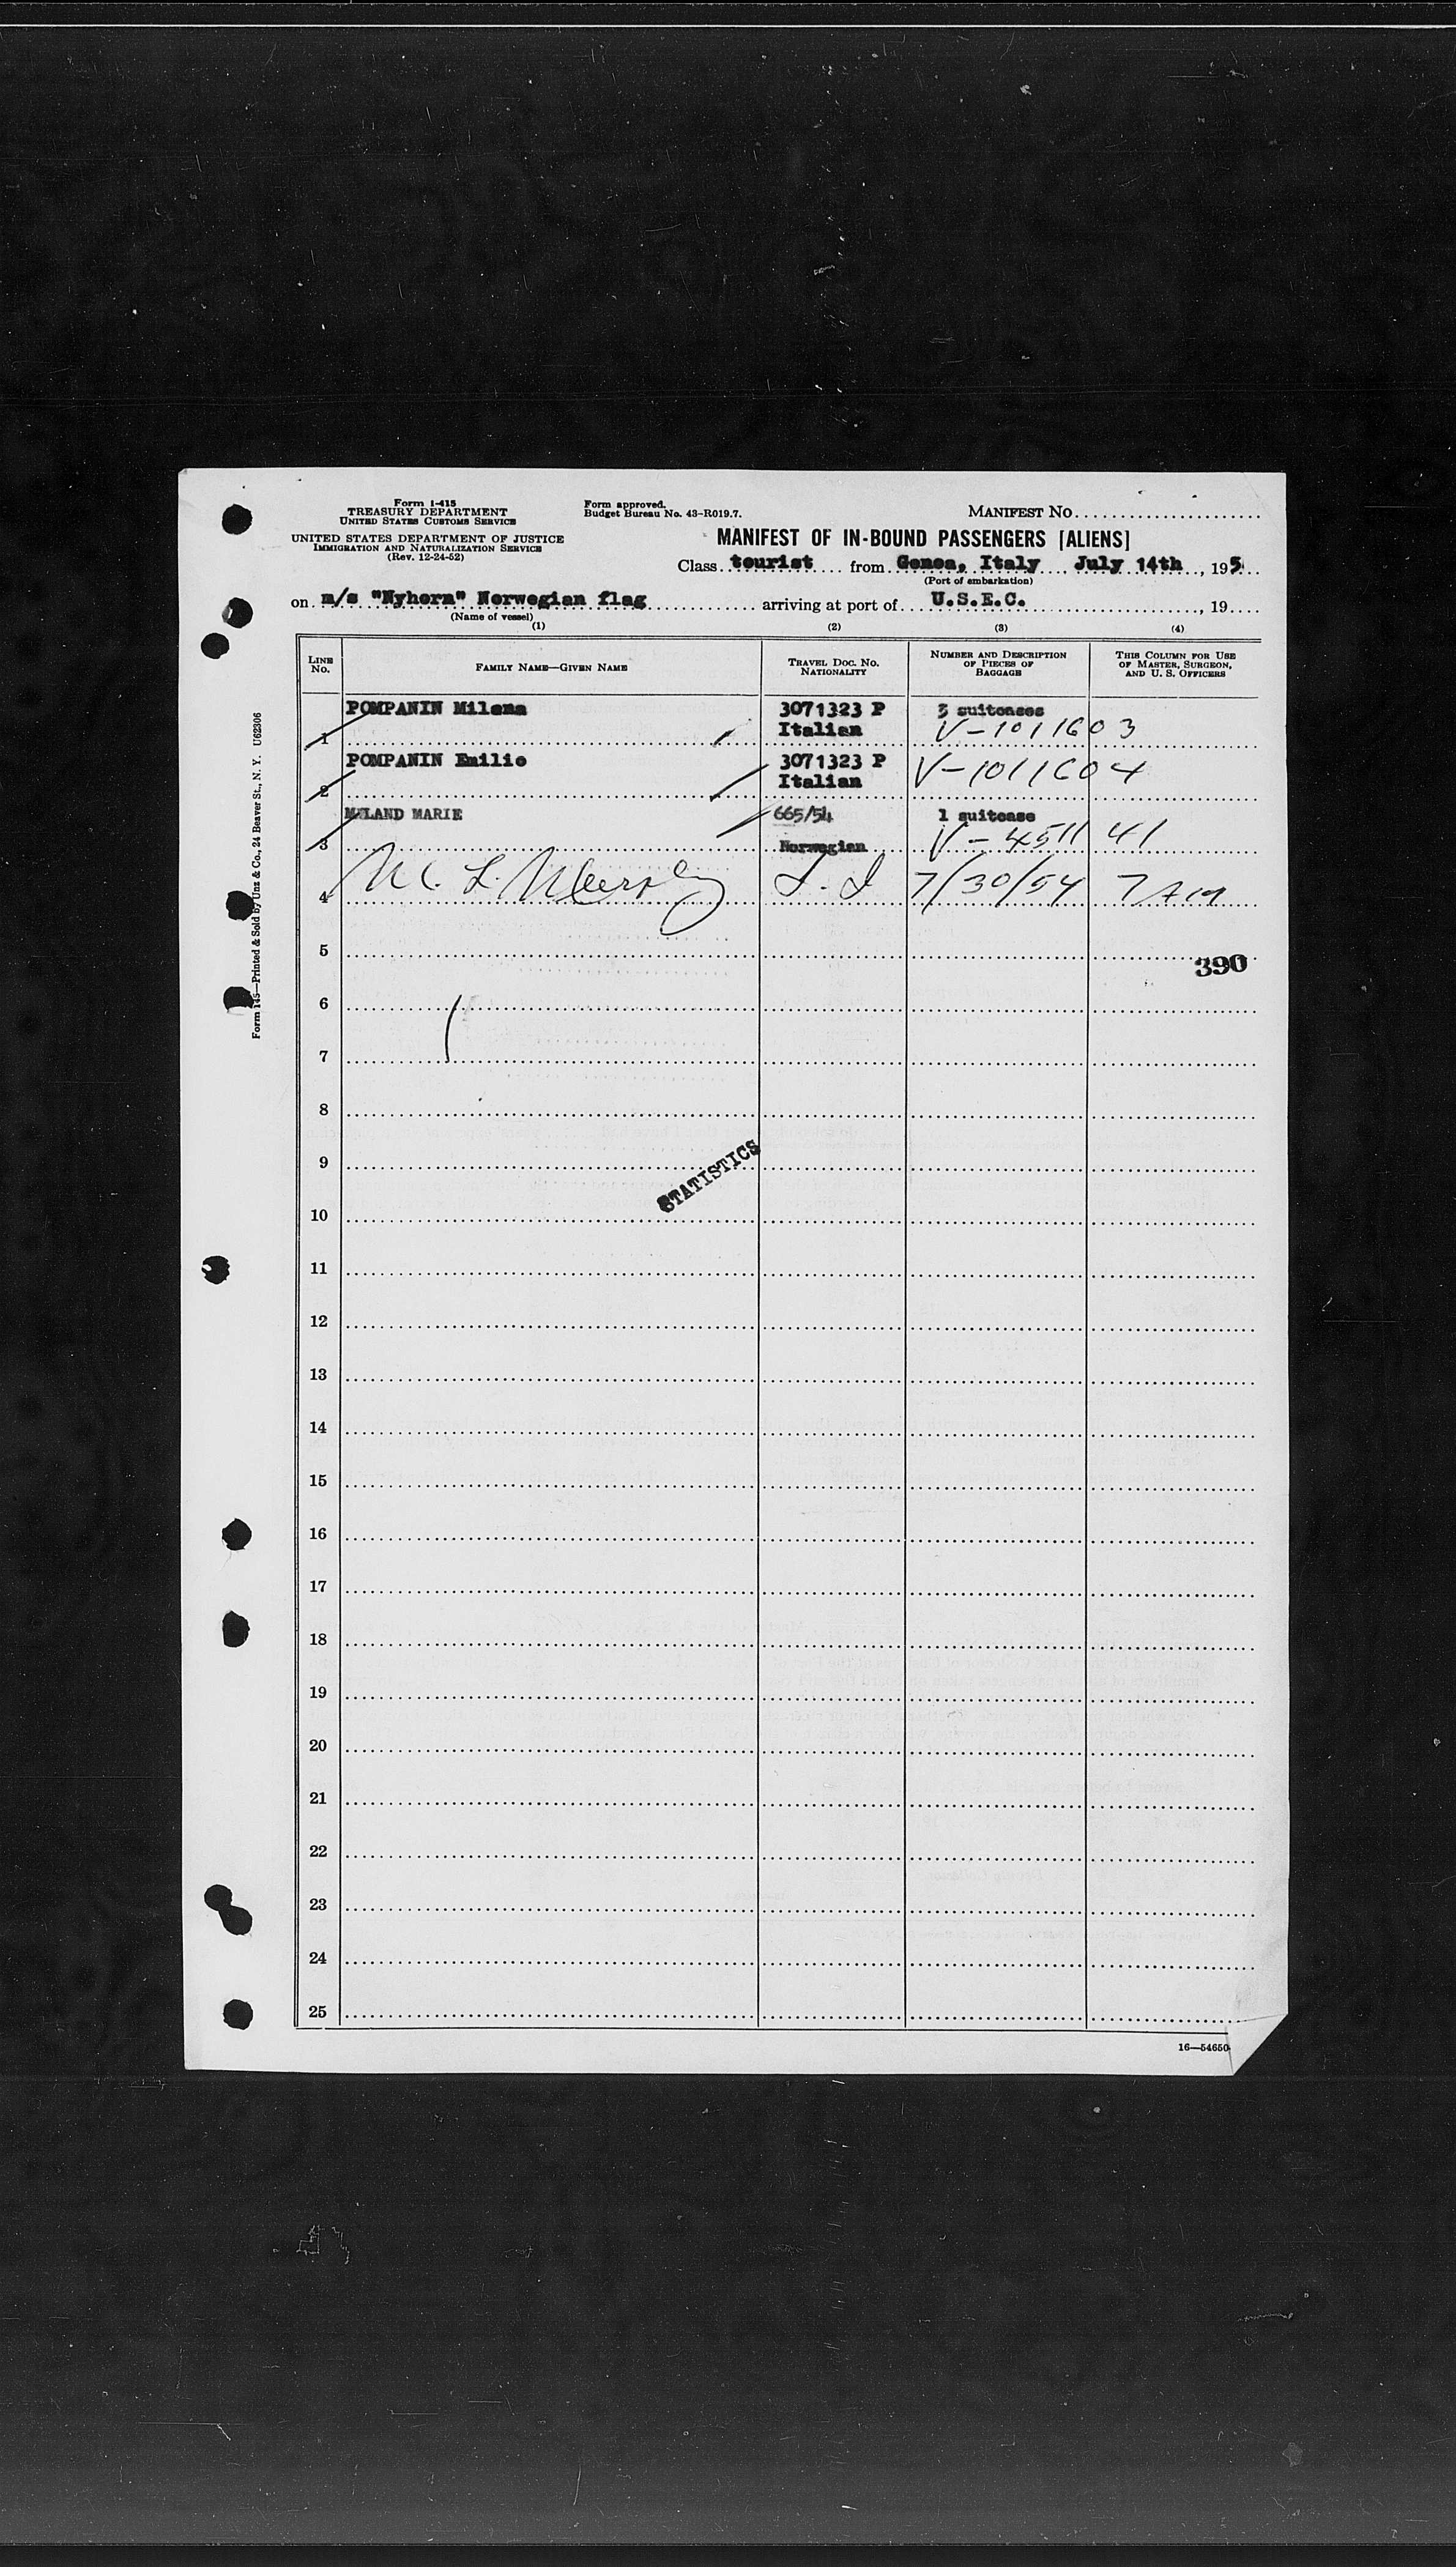 Form I-415
TREASURY DEPARTMENT
UNITED STATES CUSTOMS SERVICE
UNITED STATES DEPARTMENT OF JUSTICE
IMMIGRATION AND NATURALIZATION SERVICE
(Rev. 12-24-52)
Form approved.
Budget Bureau No. 43-R019.7.
MANIFEST NO
MANIFEST OF IN-BOUND PASSENGERS [ALIENS]
Class tourist from Genoa, Italy July 14th, 195
(Port of embarkation)
on m/s "Nyhorn" Norwegian flag arriving at port of U.S.E.C., 19
(Name of vessel)
(1) (2) (3) (4)
LINE NO. FAMILY NAME—GIVEN NAME TRAVEL DOC. NO. NATIONALITY NUMBER AND DESCRIPTION OF PIECES OF BAGGAGE THIS COLUMN FOR USE OF MASTER, SURGEON, AND U. S. OFFICERS
POMPANIN Milena 3071323 P 3 suitcases
1 Italian V-1011603
POMPANIN Emilio 3071323 P V-1011604
2 Italian
MELAND MARIE 665/54 1 suitcase
3 Norwegian V-451141
4 M. L. Murphy I. I 7/30/54 7 AM
5
390
6
7
8
9
STATISTICS
10
11
12
13
14
15
16
17
18
19
20
21
22
23
24
25
16—54650
Form 145—Printed & Sold by Unz & Co., 24 Beaver St., N. Y. U62306